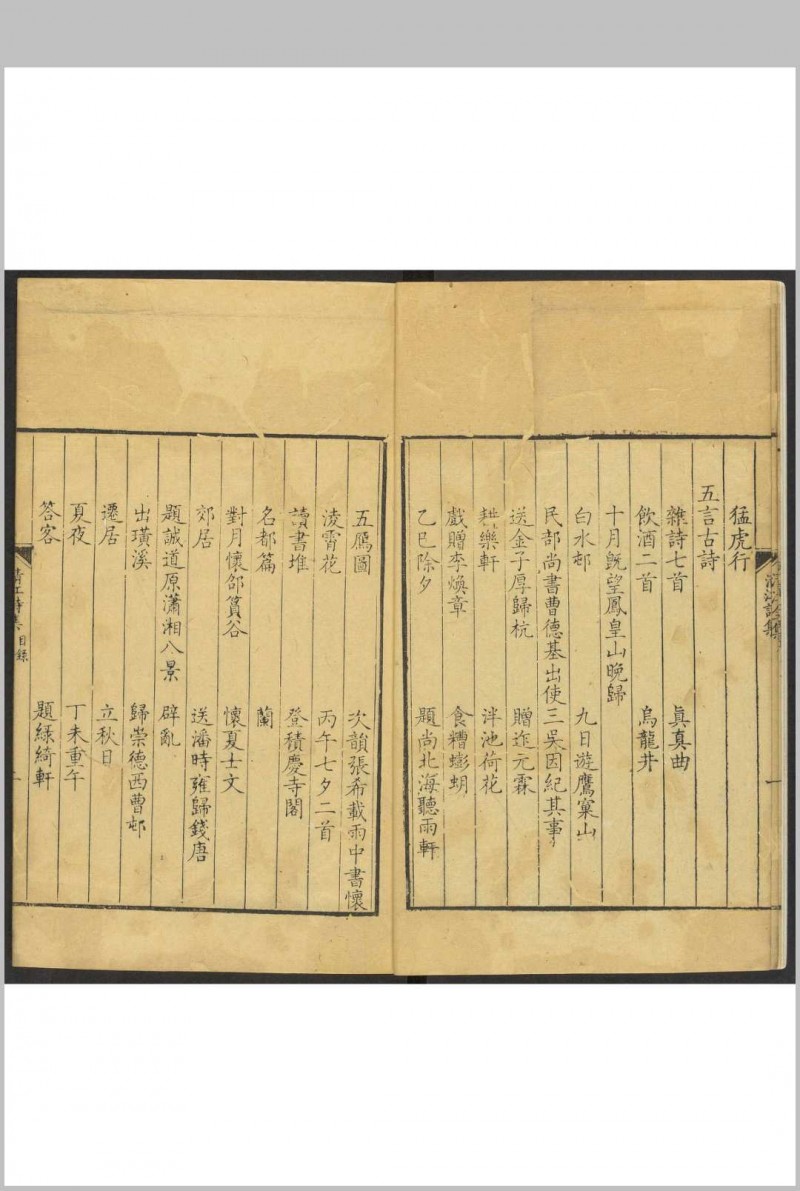 猛虎行
五言古詩
雜詩七首　真真曲
飲酒二首　烏龍井
十月旣望鳳皇山晚歸
白水邨　九日遊鷹窠山
民部尚書曹德基出使三吳因紀其事
送金子厚歸杭　贈迮元霖
耕樂軒　泮池荷花
戲贈李煥章　食糟蟛蚏
乙巳除夕　題尚北海聽雨軒
清江詩集
五鴈圖　次韻張希載雨中書懷
淩霄花　丙午七夕二首
讀書堆　登積慶寺閣
名都篇　蘭
對月懷邵篔谷　懷夏士文
郊居　送潘時雍歸錢唐
題誠道原瀟湘八景　辟亂
出璜溪　歸崇德西曹邨
遷居　立秋日
夏夜　丁未重午
答客　題綠綺軒
清江詩集　目錄